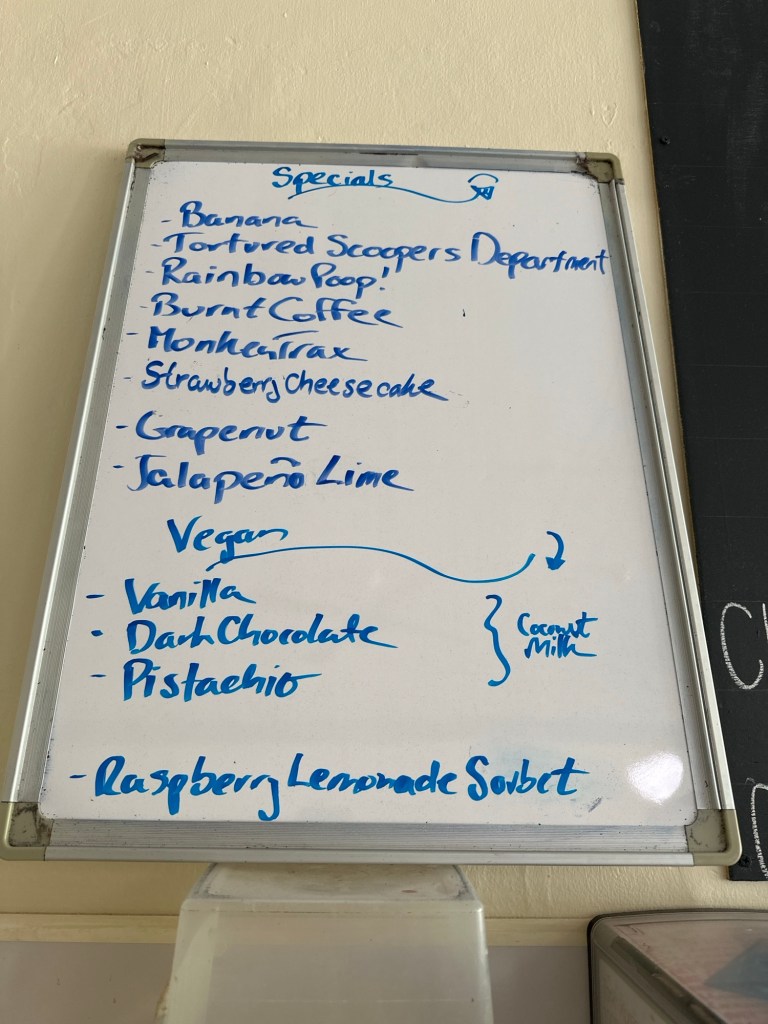 Specials
- Banana
- Tortured Scoopers Department
- Rainbow Poop!
- Burnt Coffee
- Monkey Trax
- Strawberry Cheesecake
- Grapenut
- Jalapeño Lime
Vegan
- Vanilla
- Dark Chocolate
- Pistachio
Coconut
Milk
- Raspberry Lemonade Sorbet